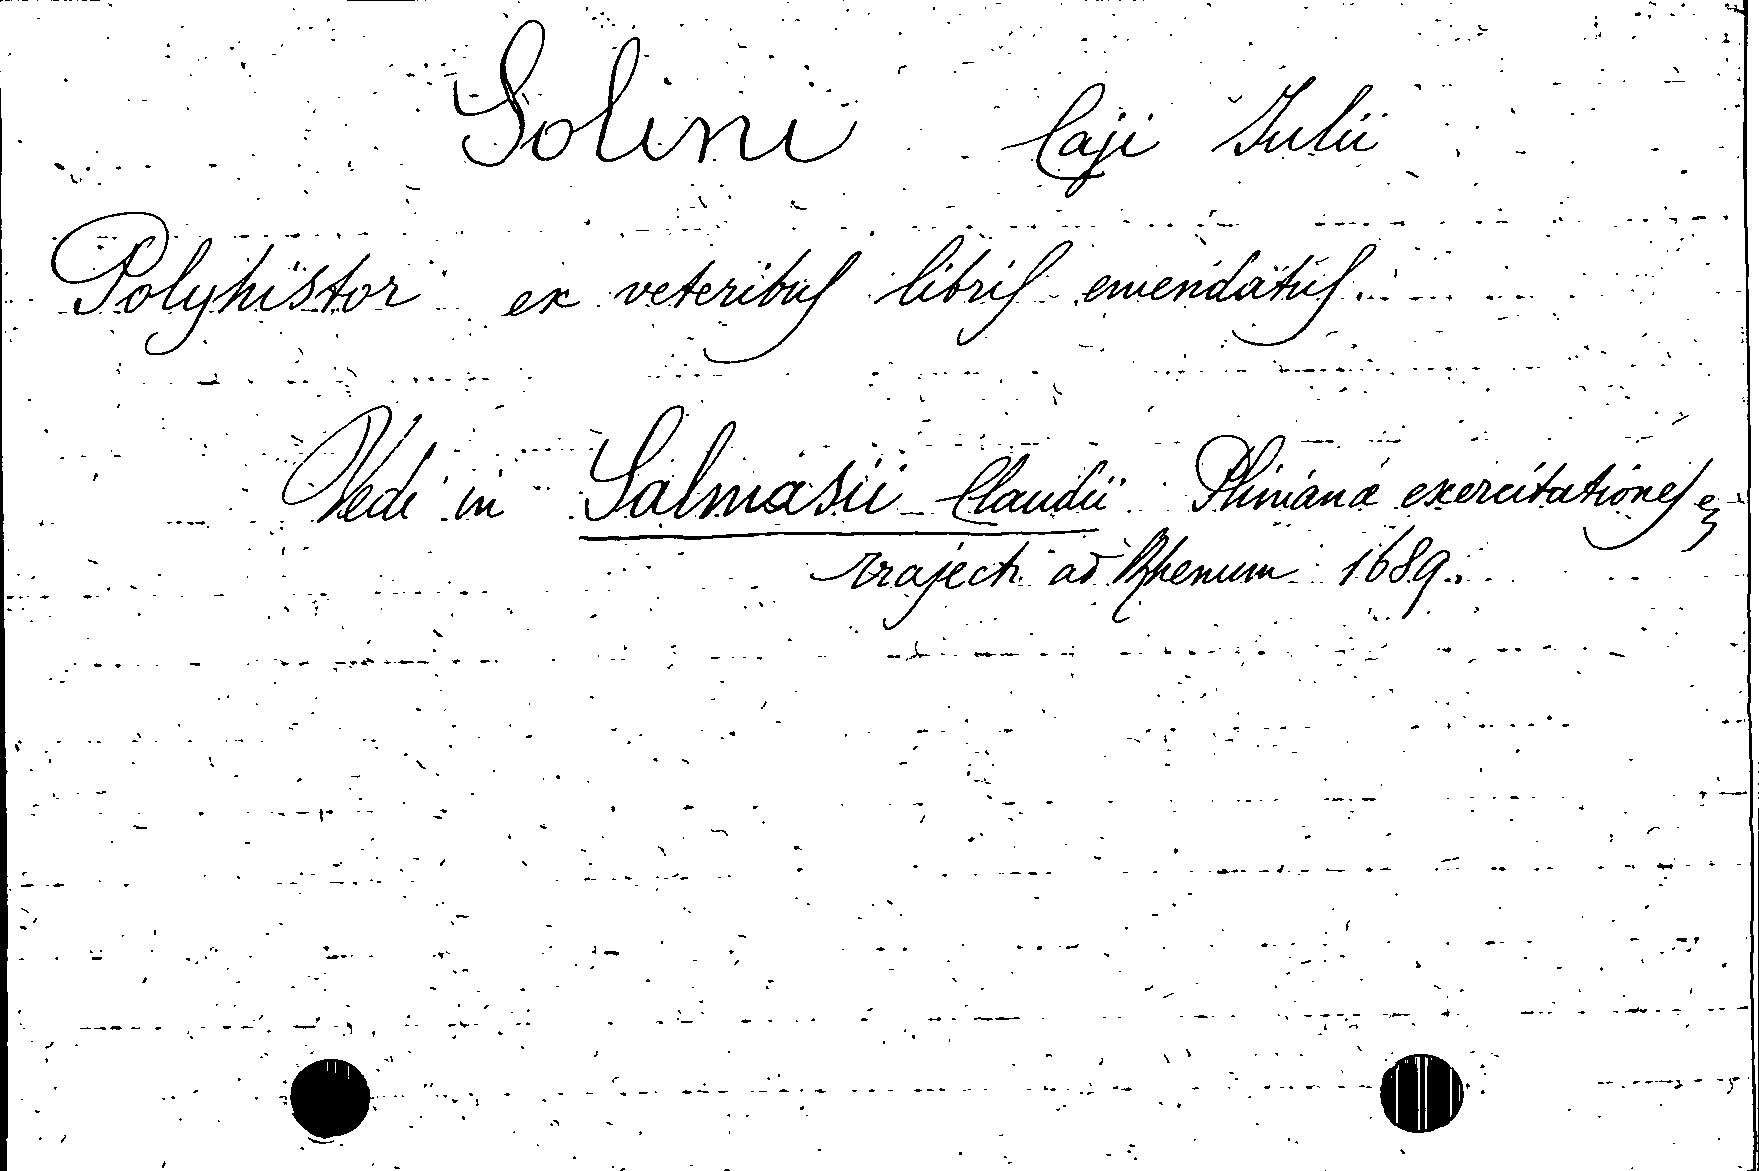 Solini Caji Julii
Polyhistor ex veteribus libris emendatus.
Vedi in Salmasii Claudii Plinianæ exercitationes
Trajecti ad Rhenum 1689.